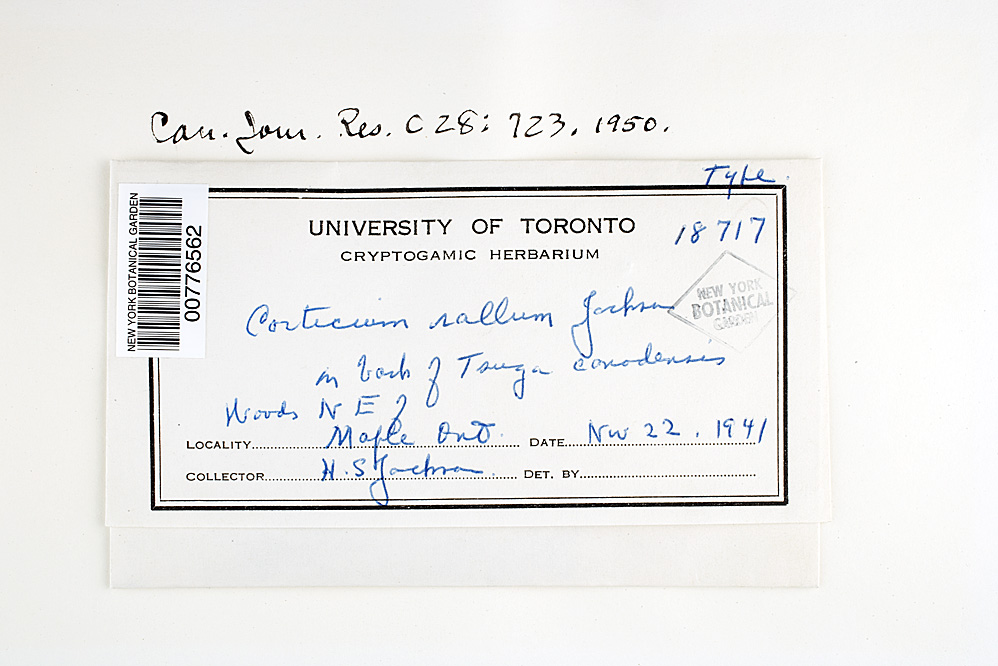 Can. Jour. Res. C 28: 723. 1950.
Type.
NEW YORK BOTANICAL GARDEN
00776562
UNIVERSITY OF TORONTO
18717
CRYPTOGAMIC HERBARIUM
NEW YORK
BOTANICAL
GARDEN
Corticium rallum Jackson
on bark of Tsuga canadensis
Woods N E of
LOCALITY Maple Ont. DATE Nov 22, 1941
COLLECTOR H.S. Jackson. DET. BY